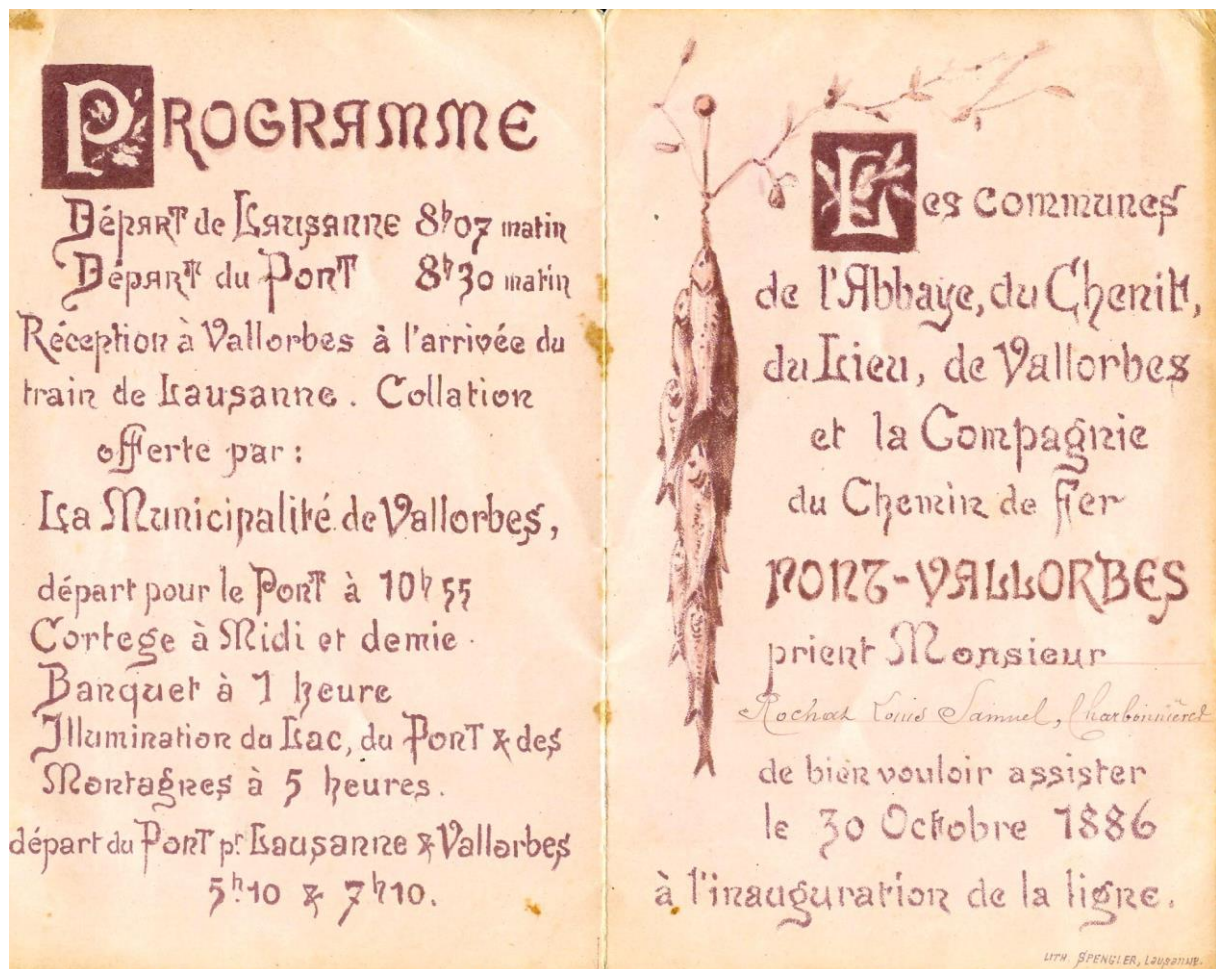 PROGRAMME
Départ de Lausanne 8h07 matin
Départ du Pont 8h30 matin
Réception à Vallorbes à l'arrivée du
train de Lausanne. Collation
offerte par :
La Municipalité de Vallorbes,
départ pour le Pont à 10h55
Cortege à Midi et demie.
Banquet à 1 heure
Illumination du Lac, du Pont & des
Montagnes à 5 heures.
départ du Pont pr. Lausanne & Vallorbes
5h10 & 7h10.
Les communes
de l'Abbaye, du Chenit,
du Lieu, de Vallorbes
et la Compagnie
du Chemin de Fer
PONT-VALLORBES
prient Monsieur
Rochat Louis Samuel, Charbonnières
de bien vouloir assister
le 30 Octobre 1886
à l'inauguration de la ligne.
LITH. SPENGLER, LAUSANNE.